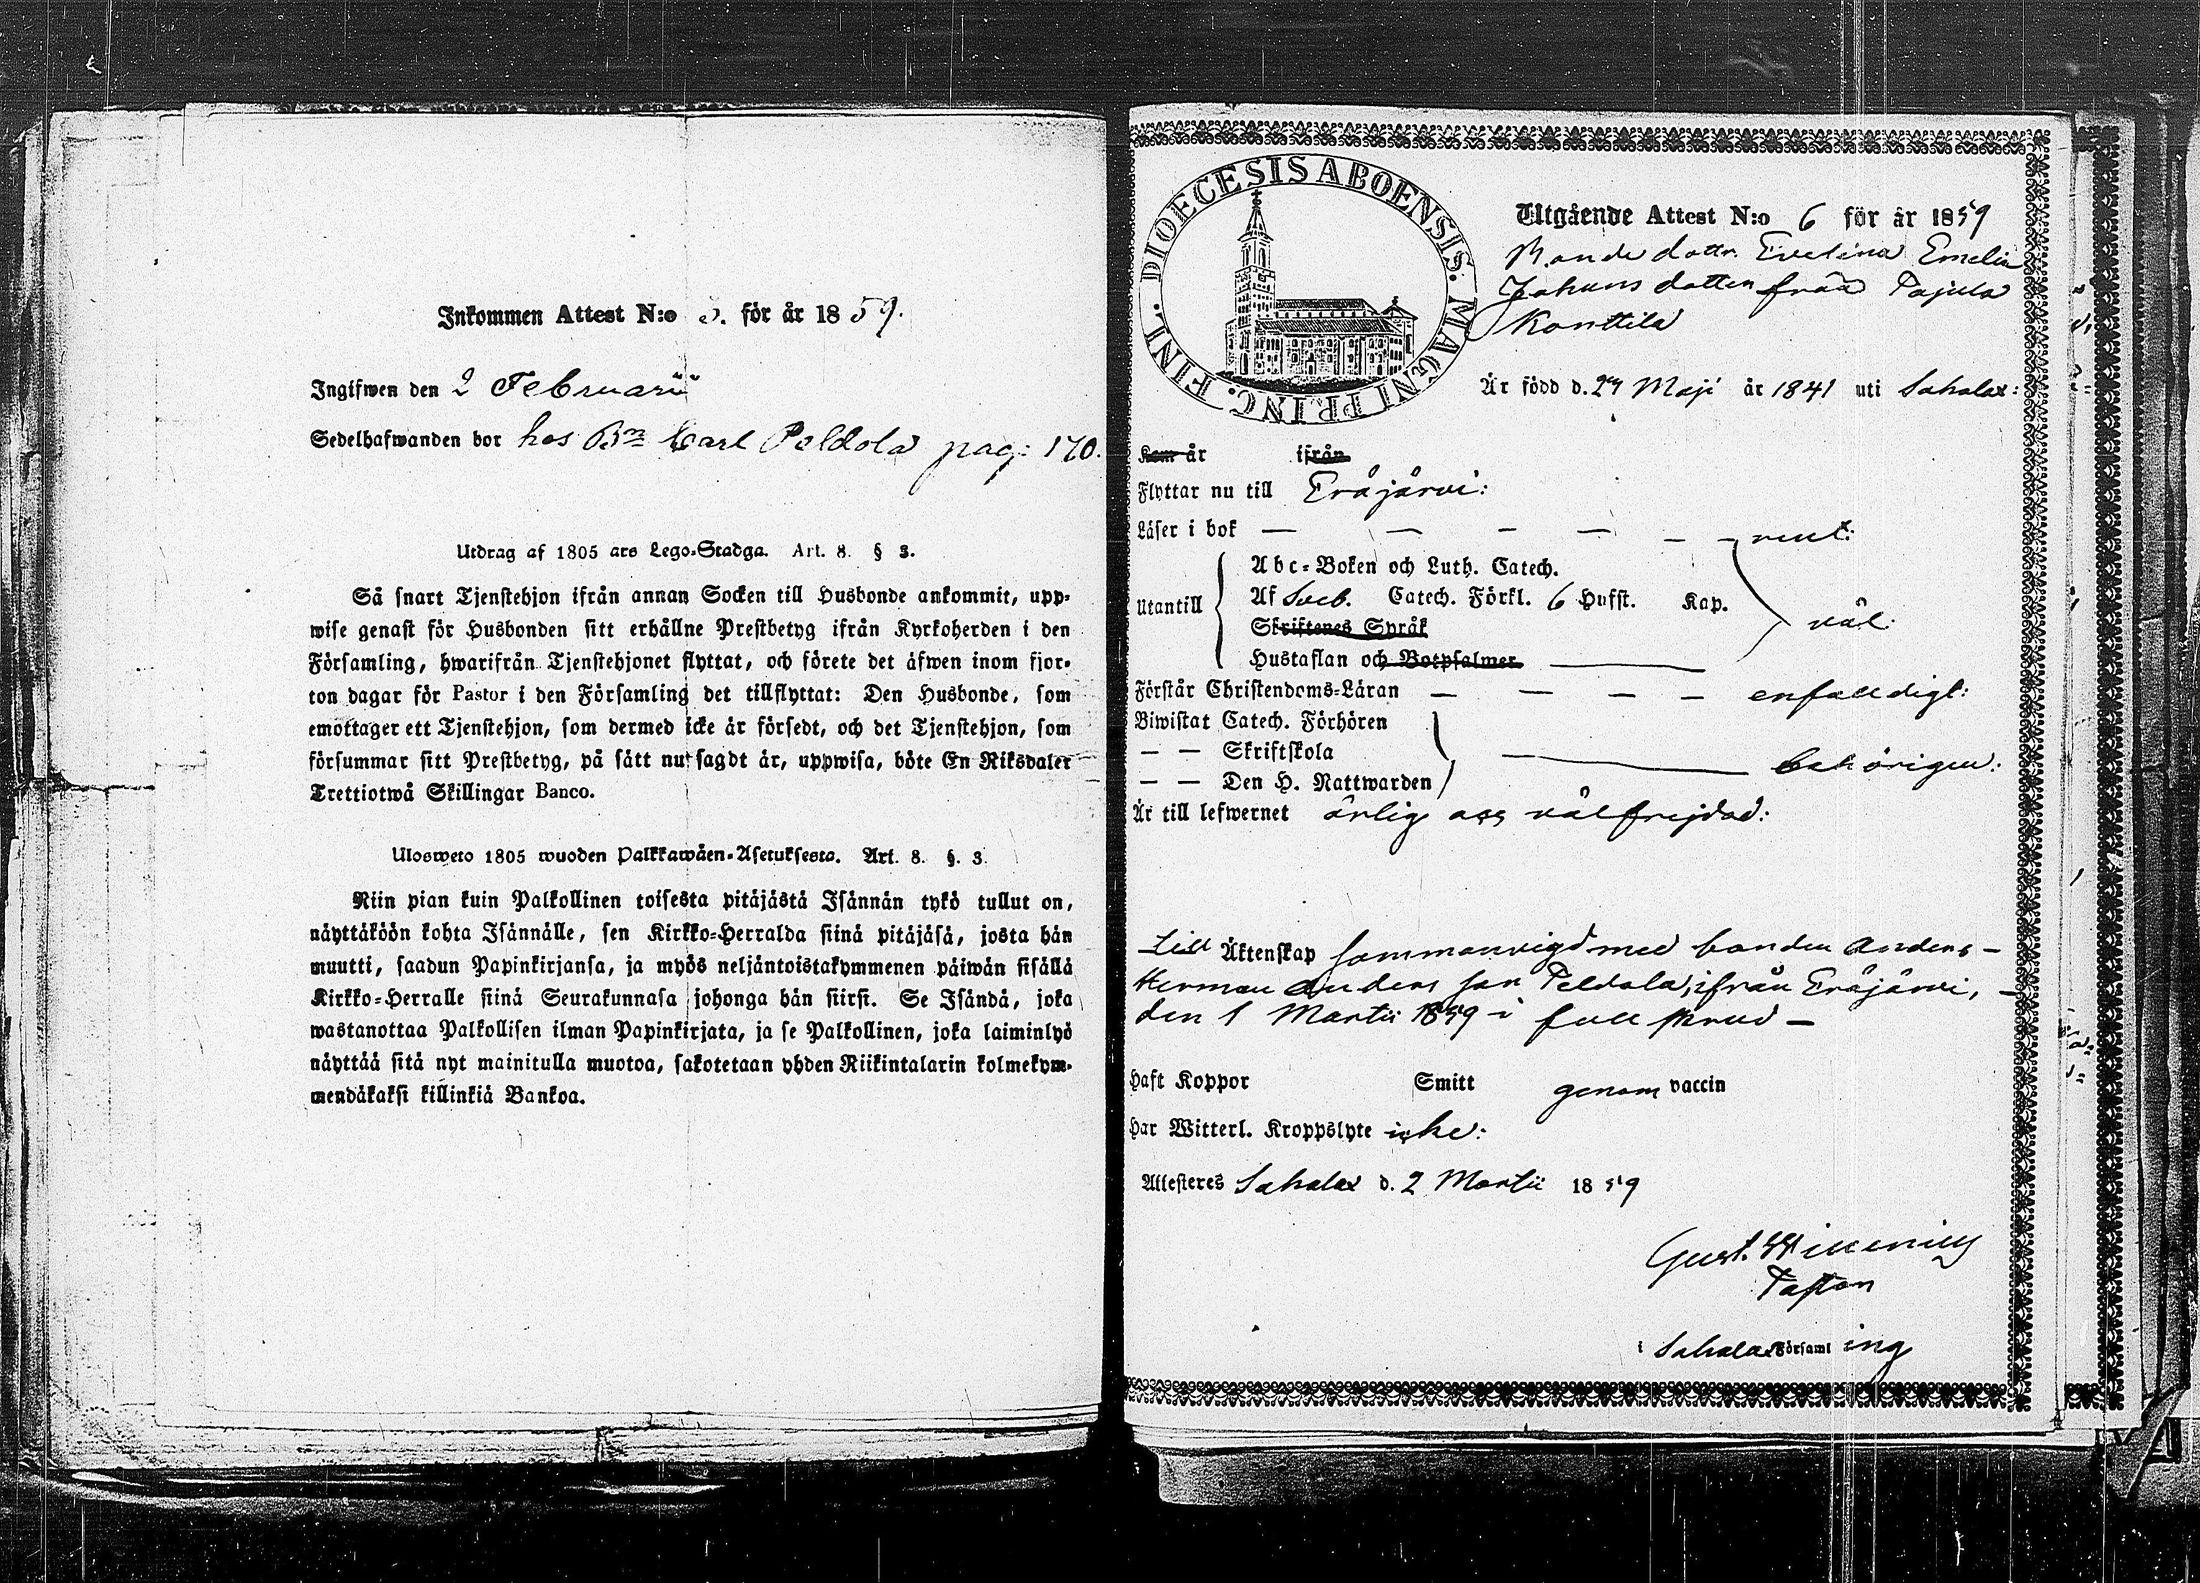 Inkommen Attest N:o 5. för år 1859.
Ingifwen den 2 Februarii
Sedelhafwanden bor hos Bn Carl Peldola pag: 170.
Utdrag af 1805 ars Lego-Stadga. Art. 8. § 3.
Så snart Tjenstehjon ifrån annan Socken till Husbonde ankommit, upp-
wise genast för Husbonden sitt erhållne Prestbetyg ifrån Kyrkoherden i den
Församling, hwarifrån Tjenstehjonet flyttat, och förete det äfwen inom fjor-
ton dagar för Pastor i den Församling det tillflyttat: Den Husbonde, som
emottager ett Tjenstehjon, som dermed icke är försedt, och det Tjenstehjon, som
försummar sitt Prestbetyg, på sätt nu sagdt är, uppwisa, böte En Riksdaler
Trettiotwå Skillingar Banco.
Ulosweto 1805 wuoden Palkkawäen-Asetuksesta. Art. 8. §. 3.
Niin pian kuin Palkollinen toisesta pitäjästä Isännän tykö tullut on,
näyttäköön kohta Isännälle, sen Kirkko-Herralda siinä pitäjäsä, josta hän
muutti, saadun Papinkirjansa, ja myös neljäntoistakymmenen päiwän sisällä
Kirkko-Herralle siinä Seurakunnasa johonga hän siirsi. Se Isändä, joka
wastanottaa Palkollisen ilman Papinkirjata, ja se Palkollinen, joka laiminlyö
näyttää sitä nyt mainitulla muotoa, sakotetaan yhden Riikintalarin kolmekym-
mendäkaksi killinkiä Bankoa.
DIOECESIS ABOENSIS. MAGNI PRINC. FINL.
Utgående Attest N:o 6 för år 1859
Bondedottr. Evelina Emelia
Johansdotter från Pajula
Konttila
Är född d. 29 Maji år 1841 uti Sahalax:
Kom år ifrån
Flyttar nu till Eräjärvi:
Läser i bok — — — — — — rent:
Abc-Boken och Luth. Catech.
Utantill Af Sveb. Catech. Förkl. 6 Hufst. Kap. väl:
Skriftenes Språk
Hustaflan och Botpsalmer
Förstår Christendoms-Läran — — — — enfalldigt:
Biwistat Catech. Förhören
— — Skriftskola behörigen:
— — Den H. Nattwarden
Är till lefwernet ärlig och välfrejdad:
Till Äktenskap sammanvigd med bonden Anders
Herman Anders son Peldola, ifrån Eräjärvi,
den 1 Martii 1859 i full skrud —
Haft Koppor Smitt genom vaccin
Har Witterl. Kroppslyte icke:
Attesteres Sahalax d. 2 Martii 1859
Gust. Winenius
Pastor
i Sahalax Församling